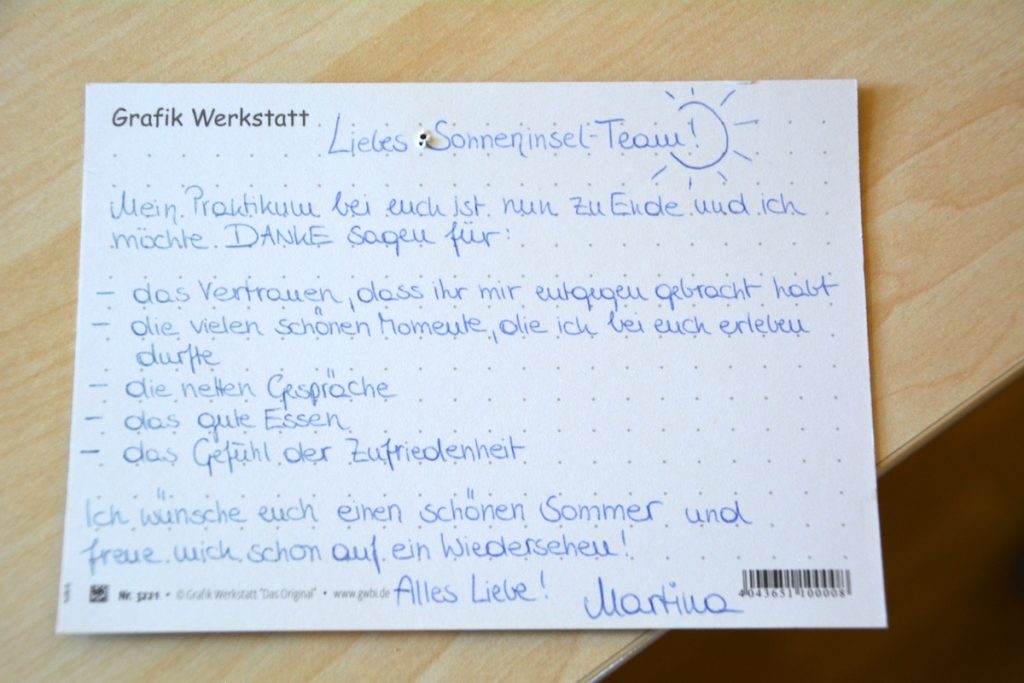 Grafik Werkstatt
Liebes Sonneninsel-Team!
Mein Praktikum bei euch ist nun zu Ende und ich
möchte DANKE sagen für:
- das Vertrauen, dass ihr mir entgegen gebracht habt
- die vielen schönen Momente, die ich bei euch erleben
durfte
- die netten Gespräche
- das gute Essen
- das Gefühl der Zufriedenheit
Ich wünsche euch einen schönen Sommer und
freue mich schon auf ein Wiedersehen!
Alles Liebe! Martina
Nr. 5221 • © Grafik Werkstatt "Das Original" • www.gwbi.de
4 043651 100008